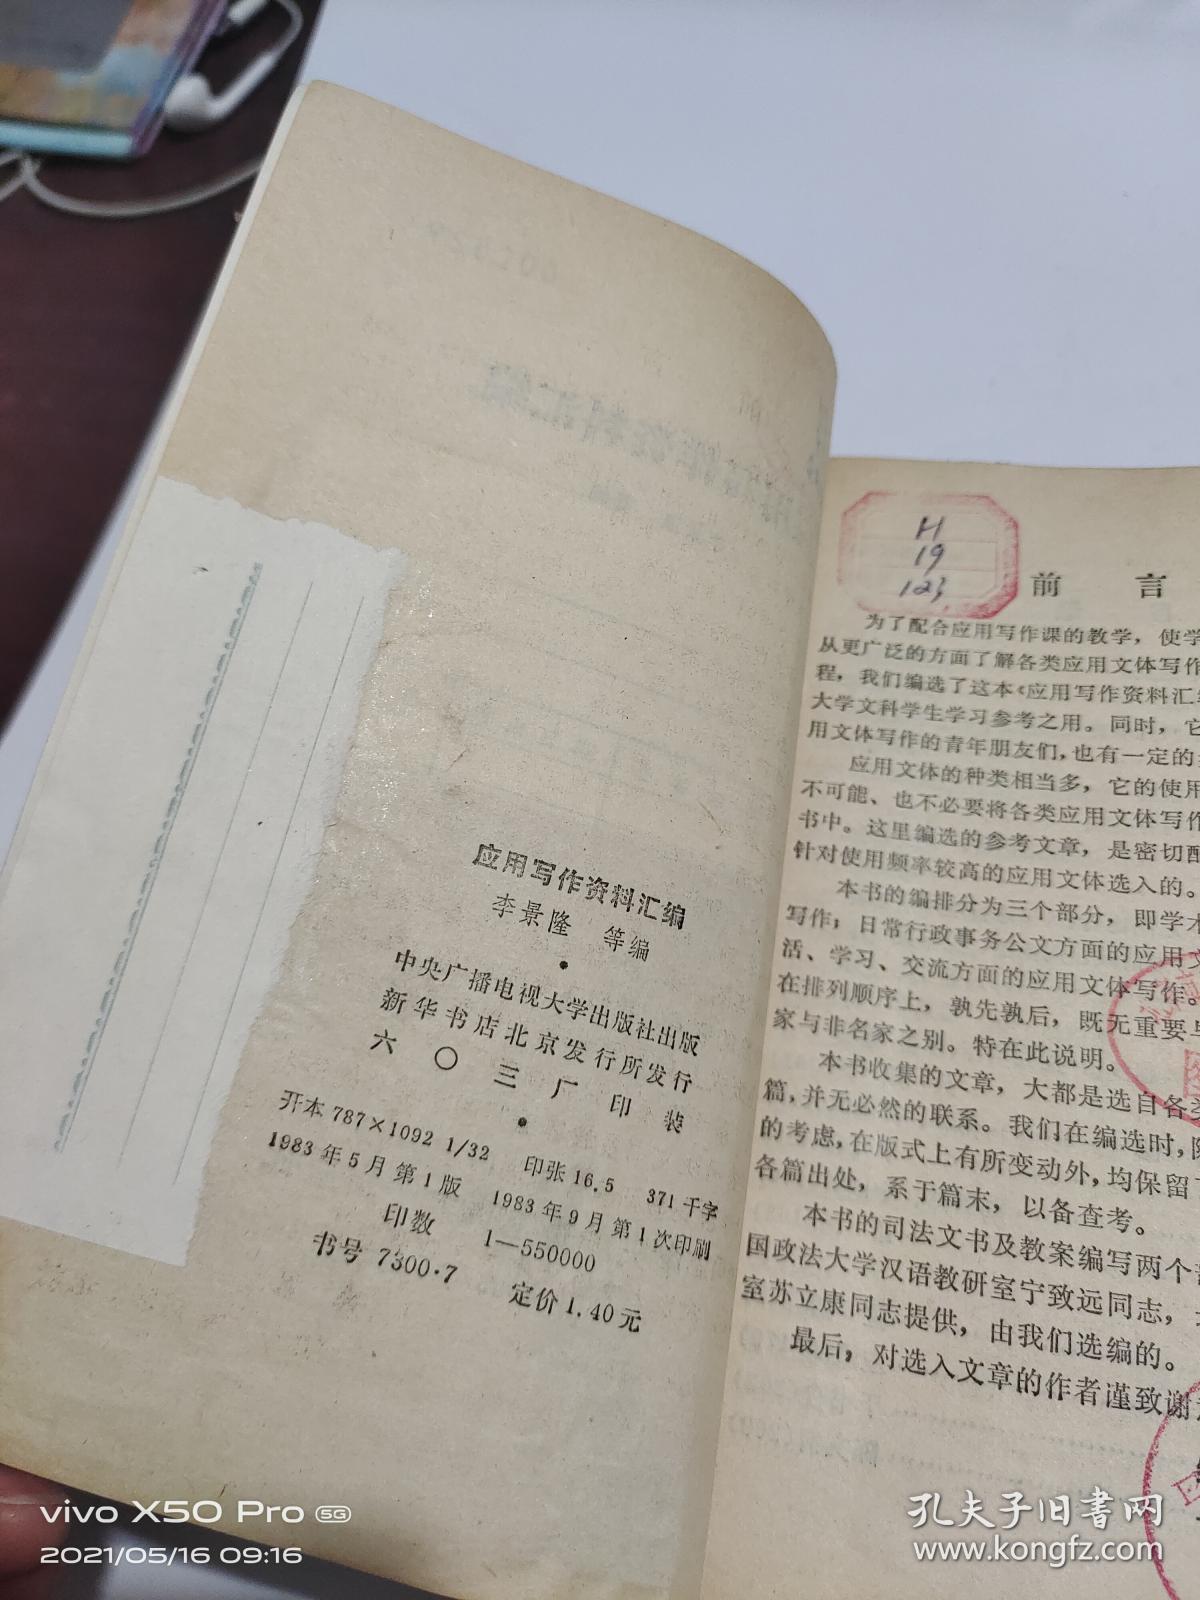 应用写作资料汇编
李景隆 等编
中央广播电视大学出版社出版
新华书店北京发行所发行
六〇三厂印装
开本 787×1092 1/32 印张16.5 371千字
1983年5月第1版 1983年9月第1次印刷
印数 1—550000
书号 7300·7 定价 1.40元
H
19
123
前 言
为了配合应用写作课的教学，使学
从更广泛的方面了解各类应用文体写作
程，我们编选了这本《应用写作资料汇编
大学文科学生学习参考之用。同时，它
用文体写作的青年朋友们，也有一定的
应用文体的种类相当多，它的使用
不可能、也不必要将各类应用文体写作
书中。这里编选的参考文章，是密切配
针对使用频率较高的应用文体选入的。
本书的编排分为三个部分，即学术
写作；日常行政事务公文方面的应用文
活、学习、交流方面的应用文体写作。
在排列顺序上，孰先孰后，既无重要与
家与非名家之别。特在此说明。
本书收集的文章，大都是选自各类
篇，并无必然的联系。我们在编选时，除
的考虑，在版式上有所变动外，均保留了
各篇出处，系于篇末，以备查考。
本书的司法文书及教案编写两个部
国政法大学汉语教研室宁致远同志，
室苏立康同志提供，由我们选编的。
最后，对选入文章的作者谨致谢
vivo X50 Pro 5G
2021/05/16 09:16
孔夫子旧书网
www.kongfz.com